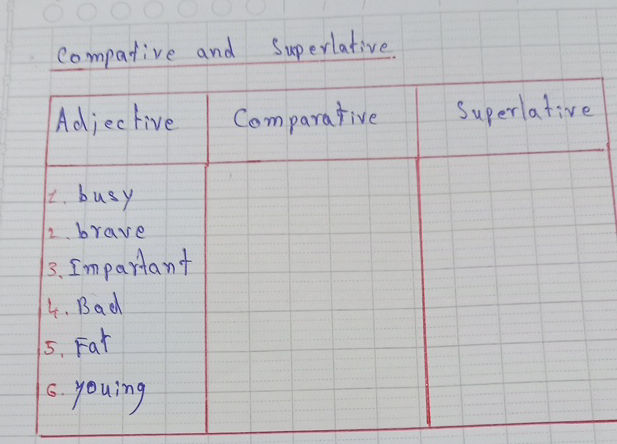 Compative and Superlative.
Adjective Comparative Superlative
1. busy
2. brave
3. Impartant
4. Bad
5. Fat
6. youing